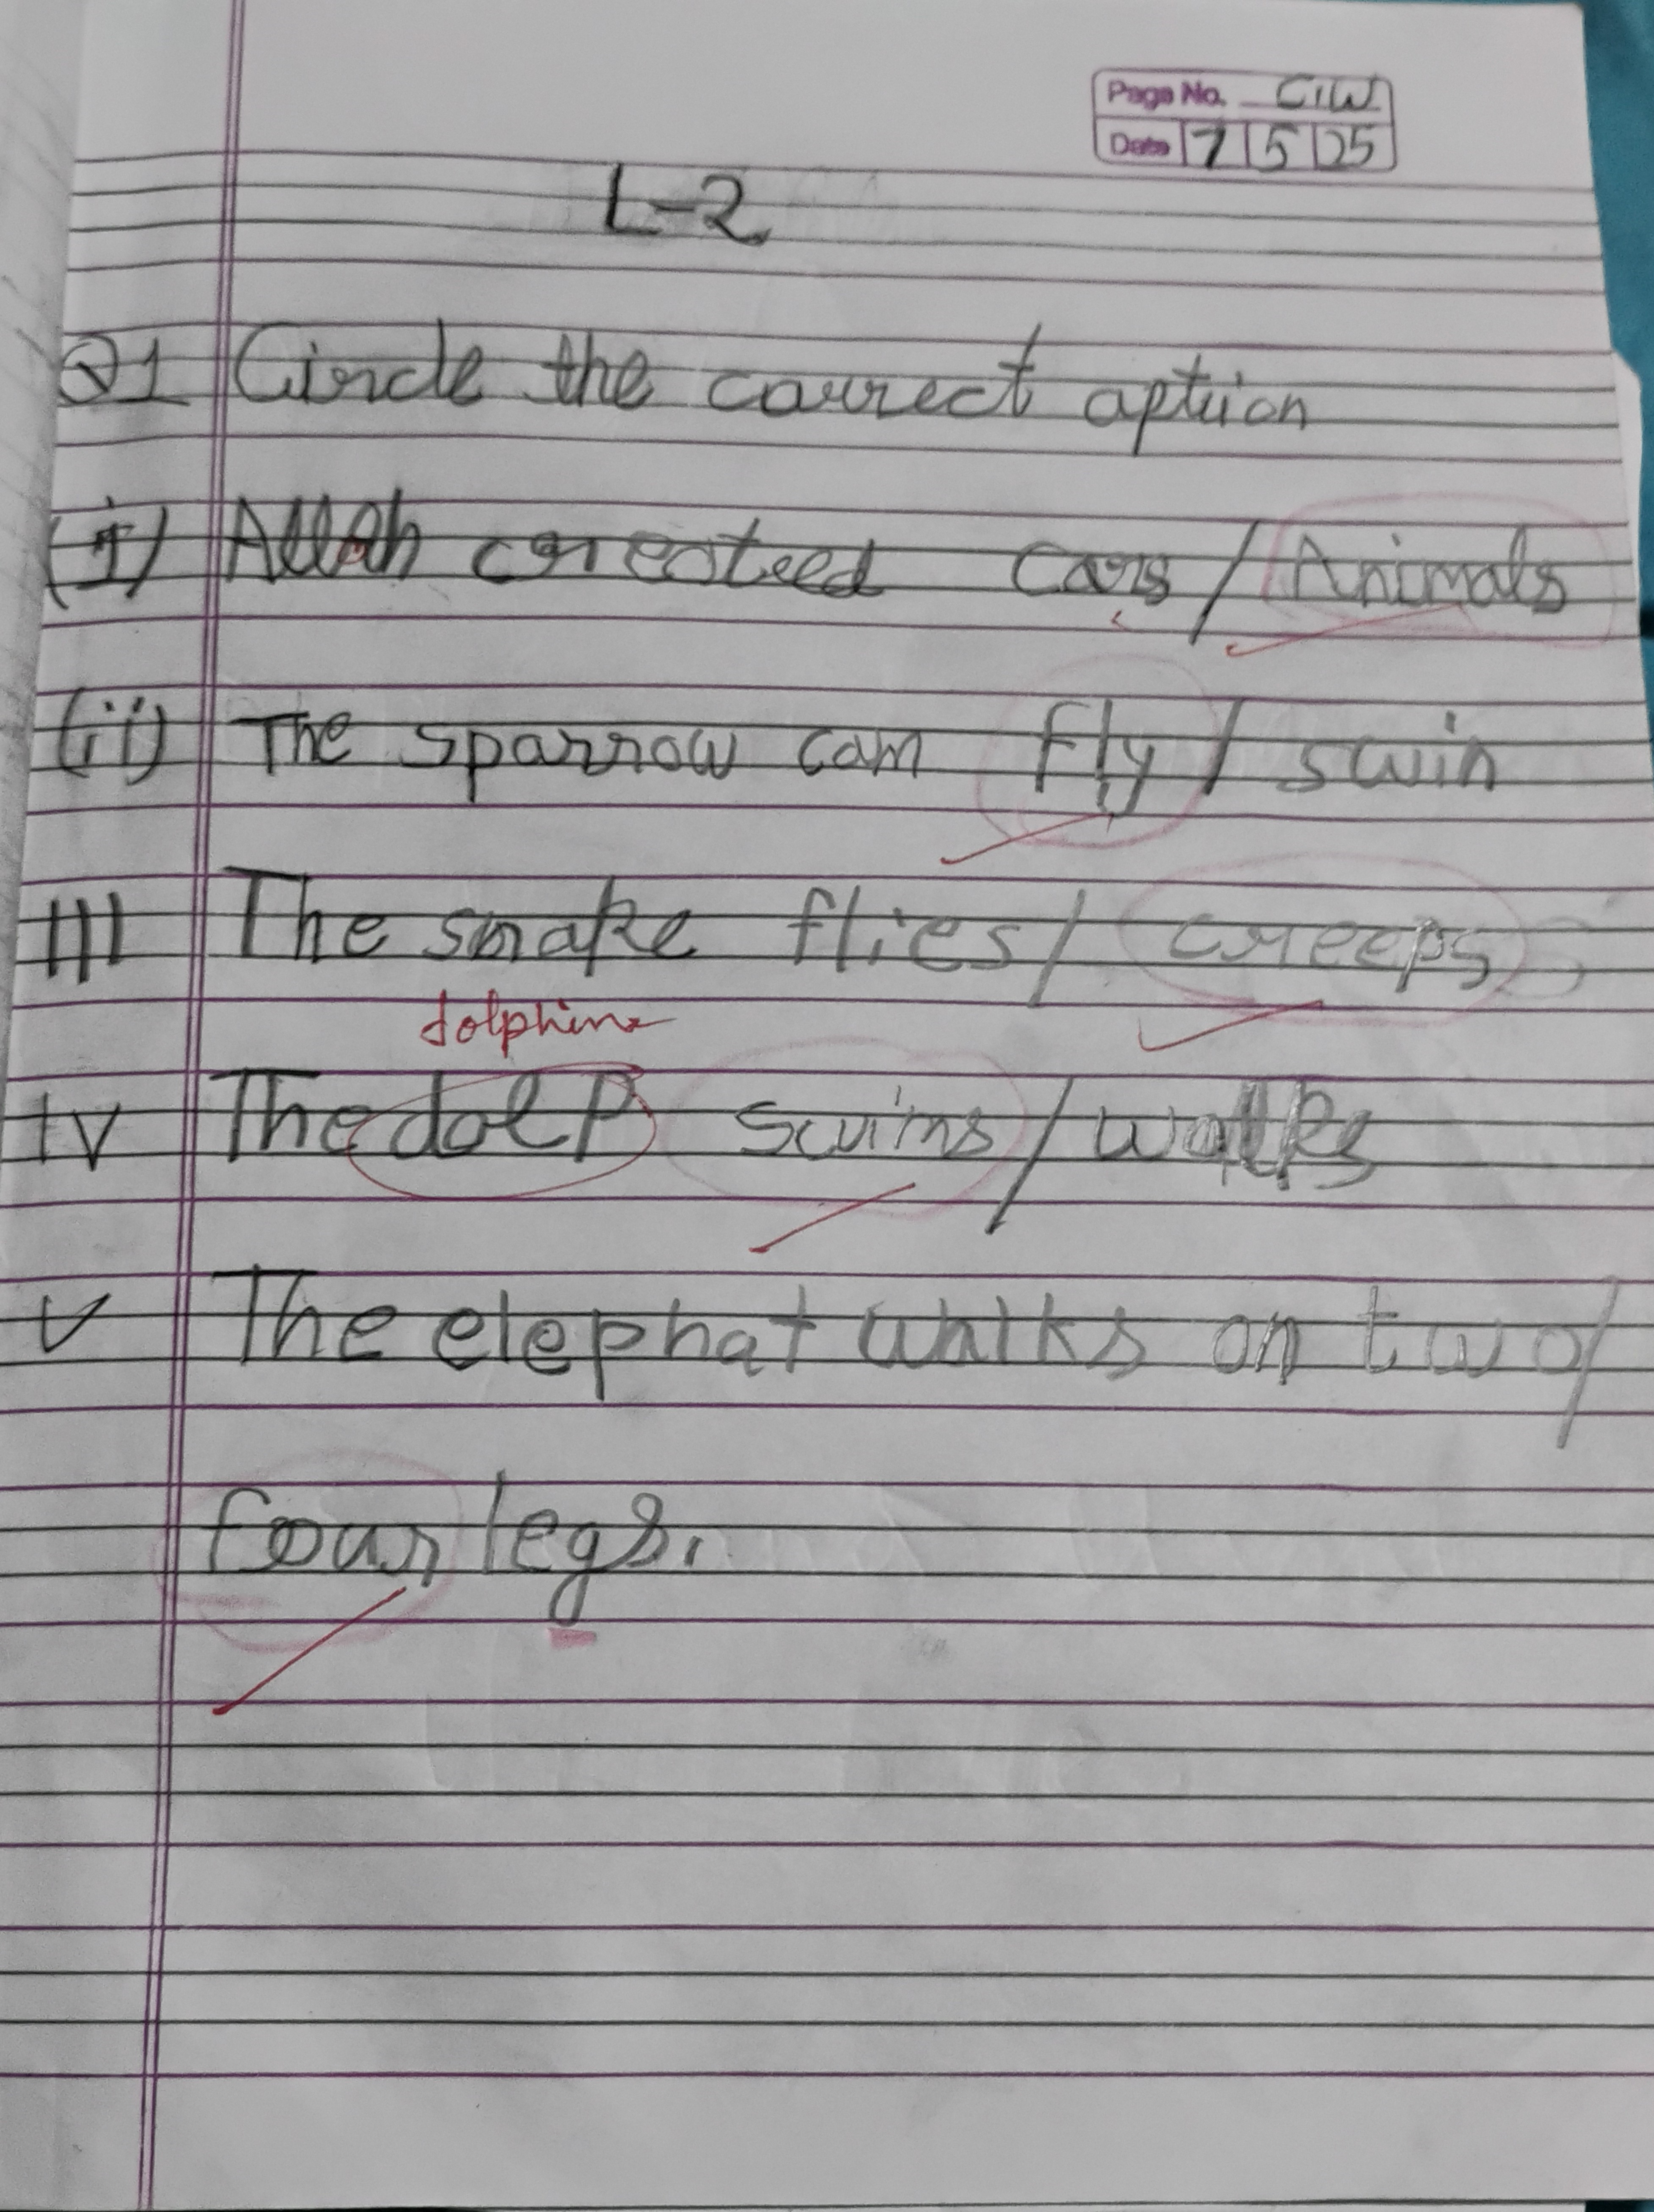 Page No. C/W
Date 7 5 25
L-2
Q1 Circle the correct option
(i) Allah created Cars / Animals
(ii) The sparrow can fly / swin
III The snake flies / creeps
dolphine
IV The dolP swims / walks
V The elephat walks on two /
four legs.